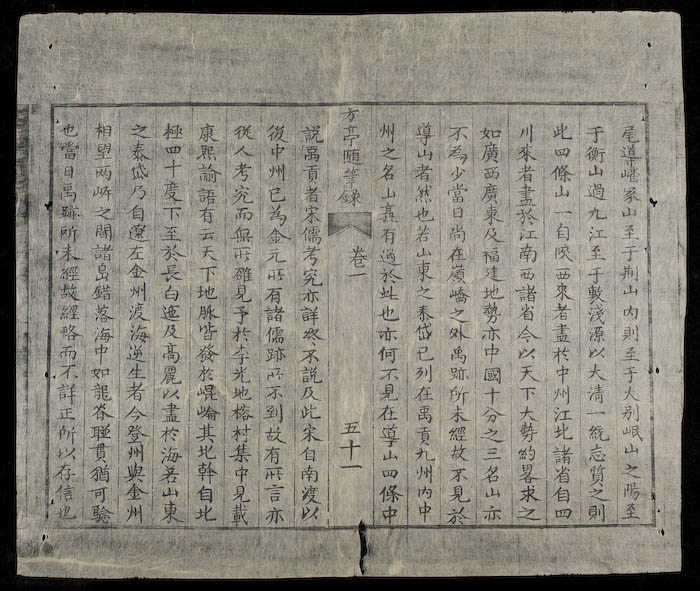 尾導嶓冢山至于荆山内則至于大别岷山之陽至
于衡山過九江至于敷淺源以大清一統志質之則
此四條山一自陜西來者盡於中州江北諸省自四
川來者盡於江南西諸省今以天下大勢約畧求之
如廣西廣東及福建地勢亦中國十分之三名山亦
不為少當日尚在嶺嶠之外禹跡所未經故不見於
導山者然也若山東之泰岱已列在禹貢九州内中
州之名山有過於此也亦何不見在導山四條中
方亭隨筆錄
卷一
五十一
說禹貢者宋儒考究亦詳終不說及此宋自南渡以
後中州已為金元所有諸儒跡所不到故有所言亦
從人考究而無所確見予於李光地榕村集中見載
康熙諭語有云天下地脉皆發於崐崙其北幹自北
極四十度下至於長白迤及高麗以盡於海若山東
之泰岱乃自遼左金州渡海逆生者今登州與金州
相望两岍之間諸島錯落海中如龍脊聯貫猶可騐
也當日禹跡所未經故經略而不詳正所以存信也